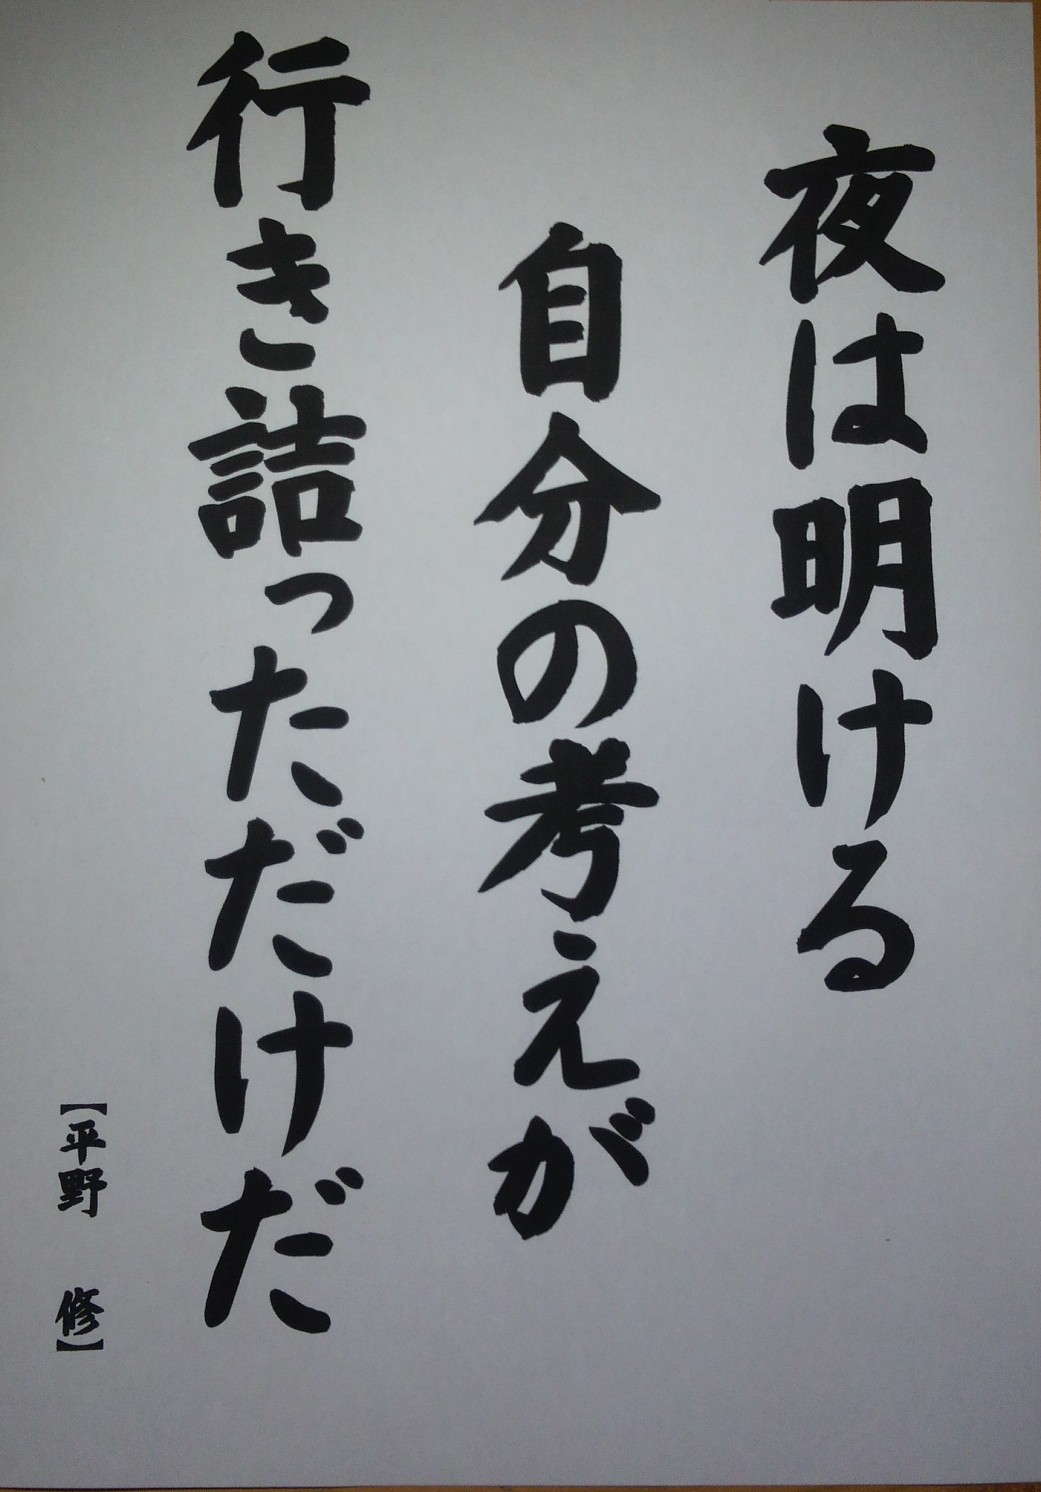 夜は明ける
自分の考えが
行き詰っただだけだ
【平野　修】